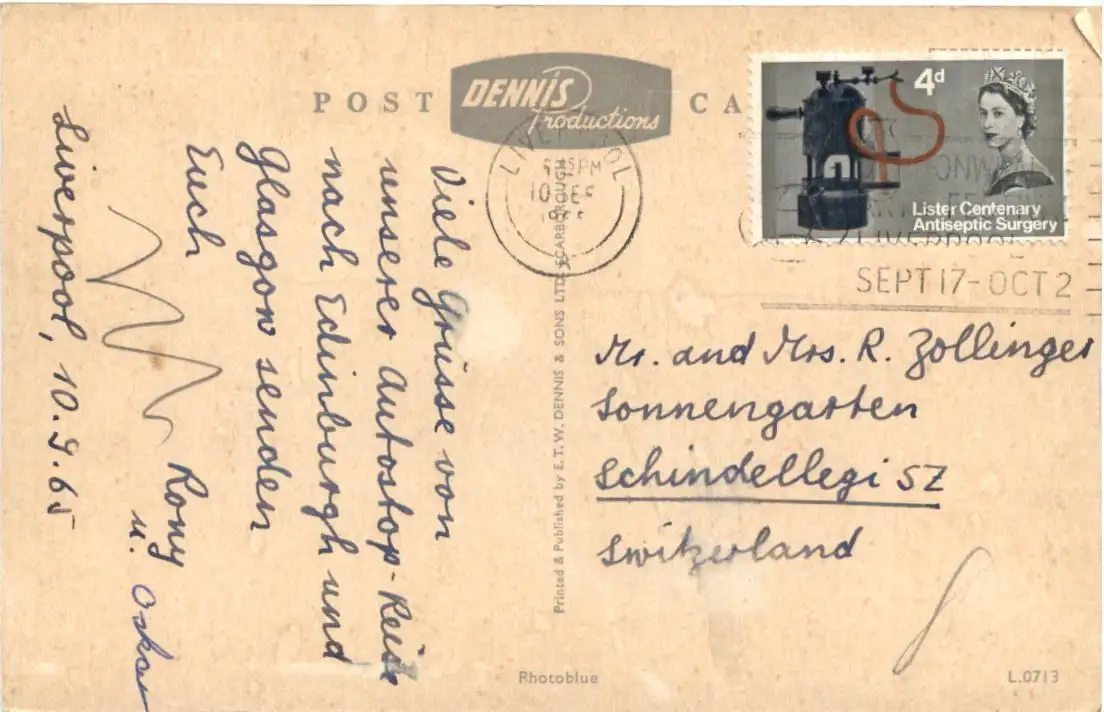 POST CA
DENNIS
Productions
4d
Lister Centenary
Antiseptic Surgery
PM
LIVERPOOL
SEPT 17-OCT 2
Viele Grüsse von
unserer Autostop-Reise
nach Edinburgh und
Glasgow senden
Euch
Rony
u. Oskar
Liverpool, 10.9.65
Printed & Published by E.T.W. DENNIS & SONS LTD. SCARBOROUGH
Mr. and Mrs. R. Zollinger
Sonnengarten
Schindellegi SZ
Switzerland
Rhotoblue
L.0713